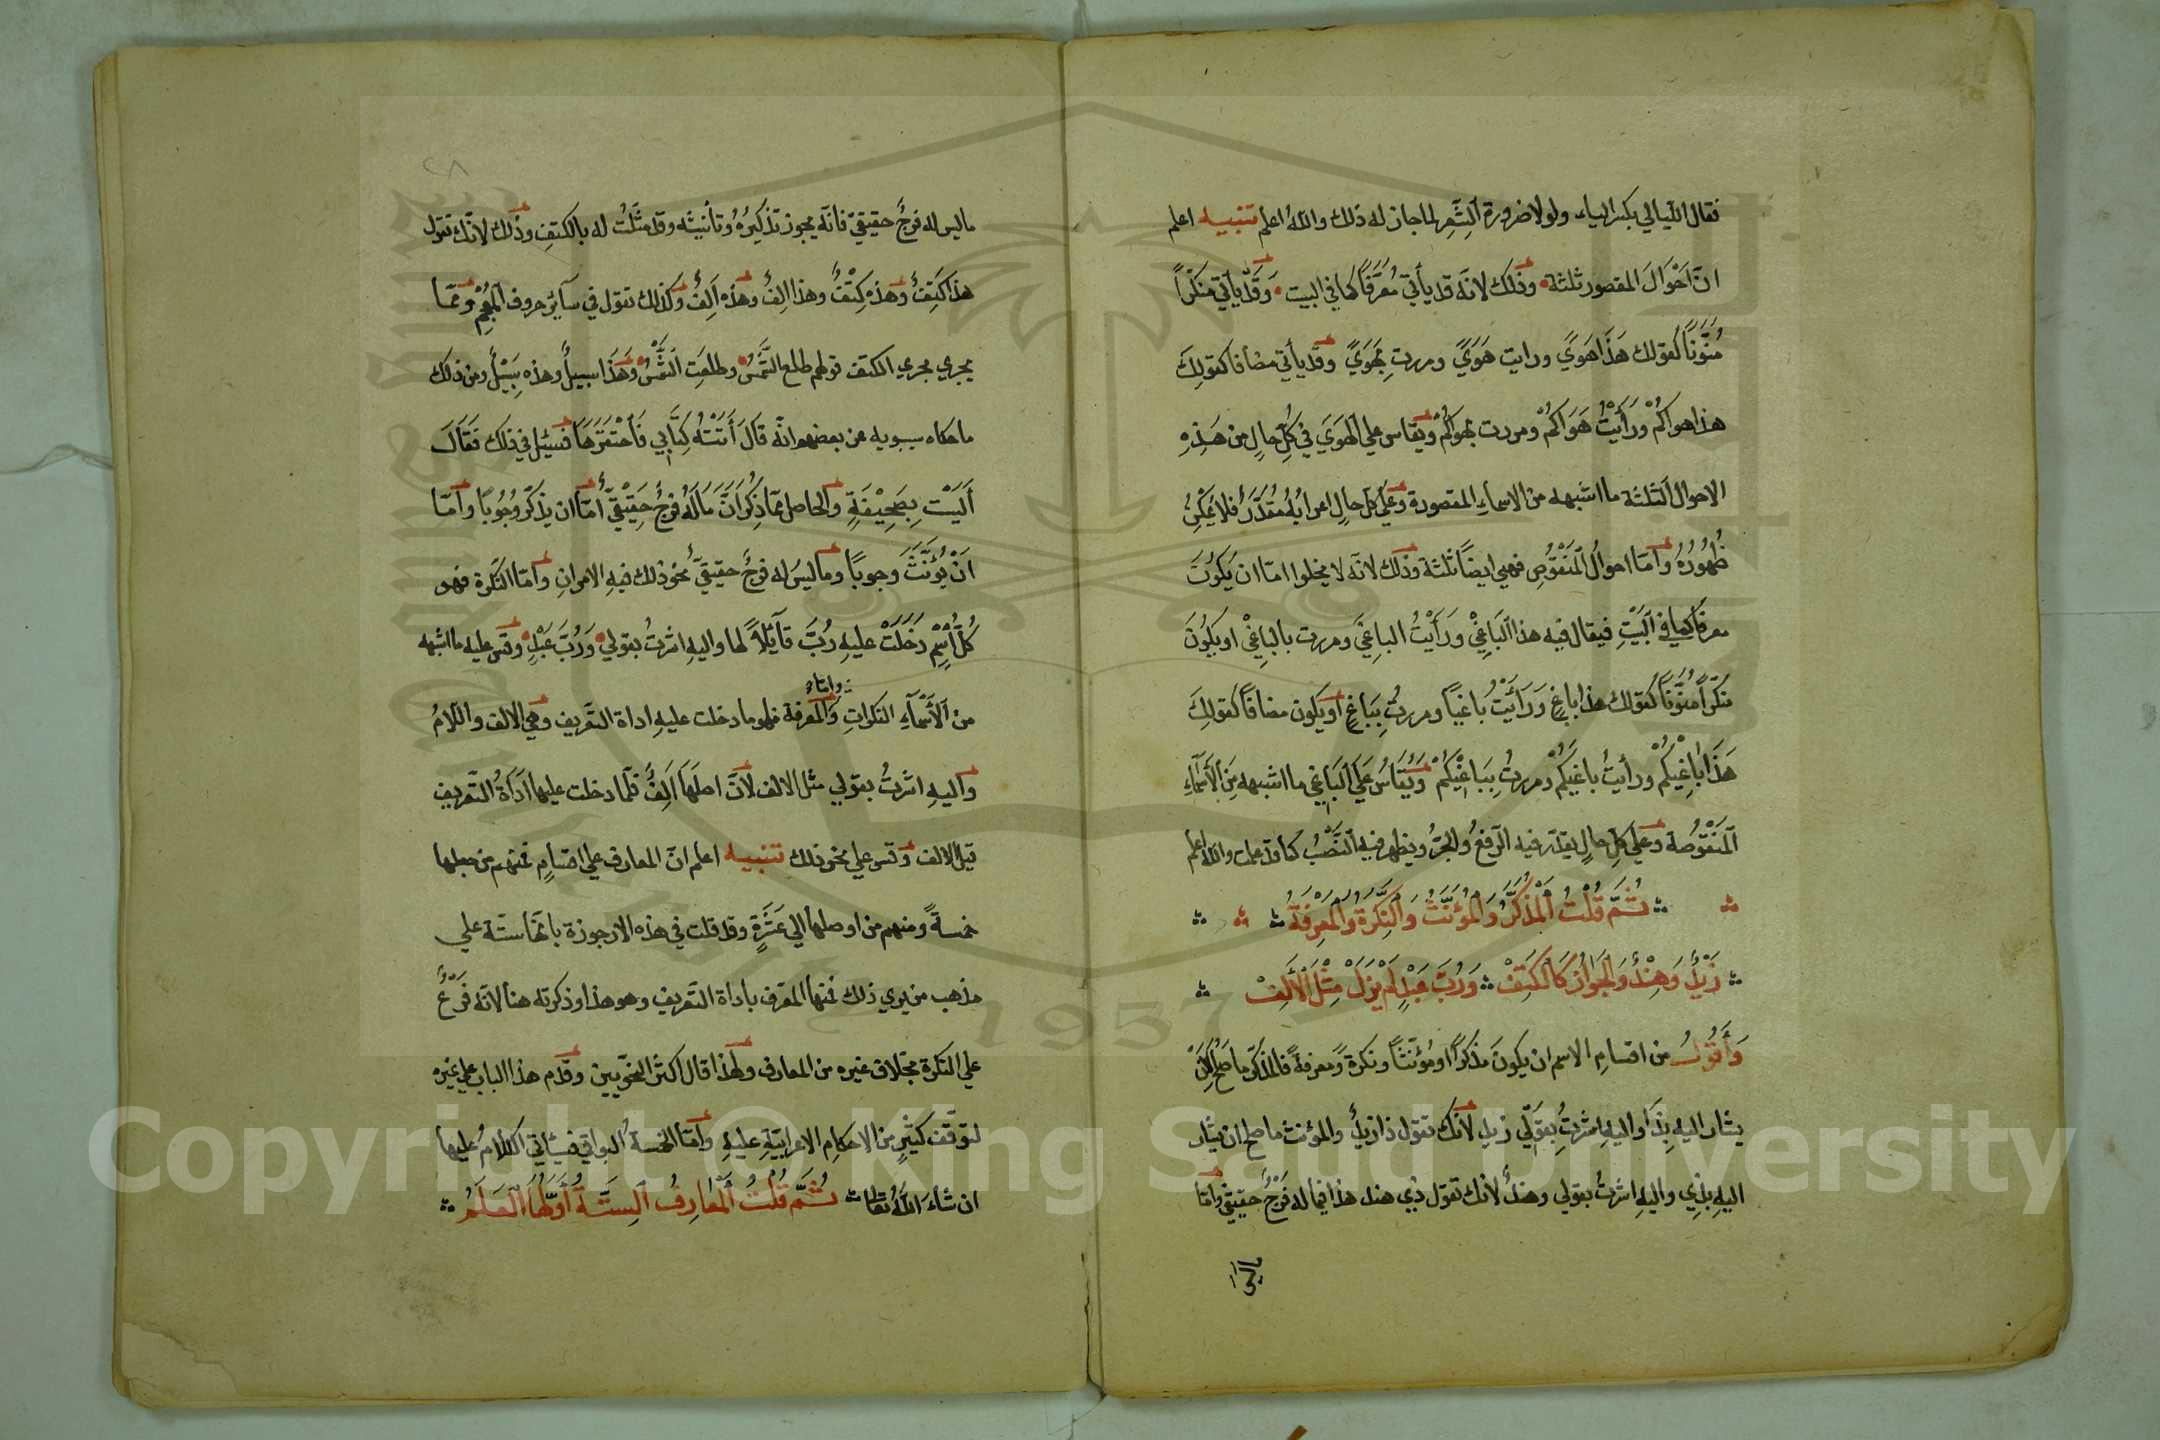 فقال اللّيالي بكسر الياء ولولا ضرورة الشّعر لما جاز له ذلك والله اعلم تنبيه اعلم
انّ احوالَ المقصور ثلثة وذلك لانّه قد يأتي مُعَرَّفًا كما في البيت وقد يأتي منكّراً
مُنَوَّنًا كقولك هَذَا هَوًي ورايت هَوًي ومررت بِهَوًي وقد يأتي مضافا كقولِكَ
هذا هواكُم ورَأَيْتُ هَوَاكُمْ ومررت بهوَاكُمْ ويقاس علي الهَوَي في كُلِّ حالٍ من هَذِهِ
الاحوال الثلثة ما اشبهه من الاسماءِ المقصورة وعلي كلّ حالٍ اعرابُهُ مُقَدَّرٌ فلا يمكنُ
ظُهُورُهُ وامّا احوالُ المنْقُوصِ فهي ايضًا ثلثة وذلك لانّه لا يخلوا امّا ان يكونَ
معرفًا كما في البَيْتِ فيقال فيه هذا البَاغِيْ ورَأَيْتُ الباغِيَ ومررت بالباغِيْ او يكُونَ
منكّراً مُنَوَّنًا كقولك هذا باغٍ وَرَأَيْتُ باغيًا ومررتُ بِبَاغٍ او يكون مضافًا كقولِكَ
هَذَا بَاغِيْكُمْ ورأيتُ باغيَكُمْ ومررتُ بِبَاغِيْكُمْ ويُقَاسُ عَلَي البَاغي ما اشبهه مِنَ الأَسْمَآءِ
المَنْقُوصَة وعلي كلّ حالٍ يقدّر فيه الرّفعُ والجرُّ ويظهر فيه النَّصْبُ كما قد عملت والله اعلم
ثُمَّ قُلْتُ المُذَكَّرُ وَالمُؤَنَّثُ وَالنَّكِرَةُ وَالمَعْرِفَةُ
زَيْدٌ وَهِنْدٌ وَالجَوَازُ كَالكَتِفْ وَرُبَّ عَبْدٍ لَمْ يَزَلْ مِثْلَ الأَلِفْ
وَأَقُولُ من اقسامِ الاسم ان يكونَ مذكراً او مُؤنّثًا ونكرةً ومعرفةً فالمذكّر ما صَحَّ لأنْ
يشار اليه بِذَا واليهِ اشرتُ بِقَوْلي زيد لأنّك تقول ذا زيدٌ والمؤنث ما صح ان يشار
اليهِ بِذِي واليهِ اشرتُ بقولي وهندٌ لأنك تقول ذي هند هذا فيما له فَرْجٌ حقيقي وامّا
ماليس
٢٨
ماليس له فرجٌ حقيقيّ فانّه يجوز تذكيرُهُ وتأنيثه وقد مثّلتُ له بالكتفِ وذلك لأنّك تقول
هذا كَتِفٌ وهذه كتْفٌ وهذا الِفٌ وهذه اَلِفٌ وكذلك تقول في سآئر حروف المُعْجَم وممّا
يجري مجري الكتف قولهم طلع الشَّمْسُ وطلعَتِ الشّمْسُ وهَذَا سبيلٌ وهذه سَبِيْلٌ ومن ذلك
ما حكاه سيبويه عن بعضهم انّه قَالَ أَتَتْهُ كِتَابي فَأَحْتَقَرَهَا فسئل في ذلك فَقَالَ
أَلَيْسَتْ بِصَحِيْفَةٍ والحاصل ممّا ذُكِرَ أَنَّ مَا لَهُ فرجٌ حَقِيْقِيٌّ امّا ان يذكّر وُجُوبًا وامّا
اَنْ يُؤَنَّثَ وجوبًا وما ليسَ له فرجٌ حقيقيٌّ يجوز ذلك فيهِ الامرانِ وامّا النّكرة فهو
كُلُّ اسْمٍ دَخَلَتْ عليهِ رُبَّ قابلاً لها واليهِ اشرتُ بقولي وَرُبَّ عَبْدٍ وقس عليه ما اشبهه
من الأسْمآءِ النكراتِ وامّا المعرفة فهو ما دخلت عليهِ اداة التعريف وهي الالف واللامُ
واليهِ اشرتُ بقولي مثل الالف لأنّ اصلَهَا اَلِفٌ فلمّا دخلت عليها اَدَاةُ التّعريف
قيل الالف وقس علي نحو ذلك تنبيه اعلم انّ المعارف علي اقسامٍ فمنهم من جعلها
خمسةً ومنهم من اوصلها الي عَشَرَةٍ وقد قلت في هذه الارجوزة بانّها ستّة علي
مذهب من يري ذلك فمنها المعرّف باداة التّعريف وهو هذا وذكرته هنا لانّه فَرْعٌ
علي النّكرة بخلاف غيره من المعارف ولهذا قال اكثر النحويين وقدّم هذا الباب علي غيره
لتوقّف كثيرٍ من الاحكامِ الاعرابيّةِ عليهِ وامّا الخمسة البواقي فسيأتي الكلامُ عليها
ان شاءَ اللّهُ تعالي ثُمَّ قُلْتُ المَعَارِفُ السِتَّةُ أَوَّلُهَا العَلَمُ
Copyright © King Saud University
1957